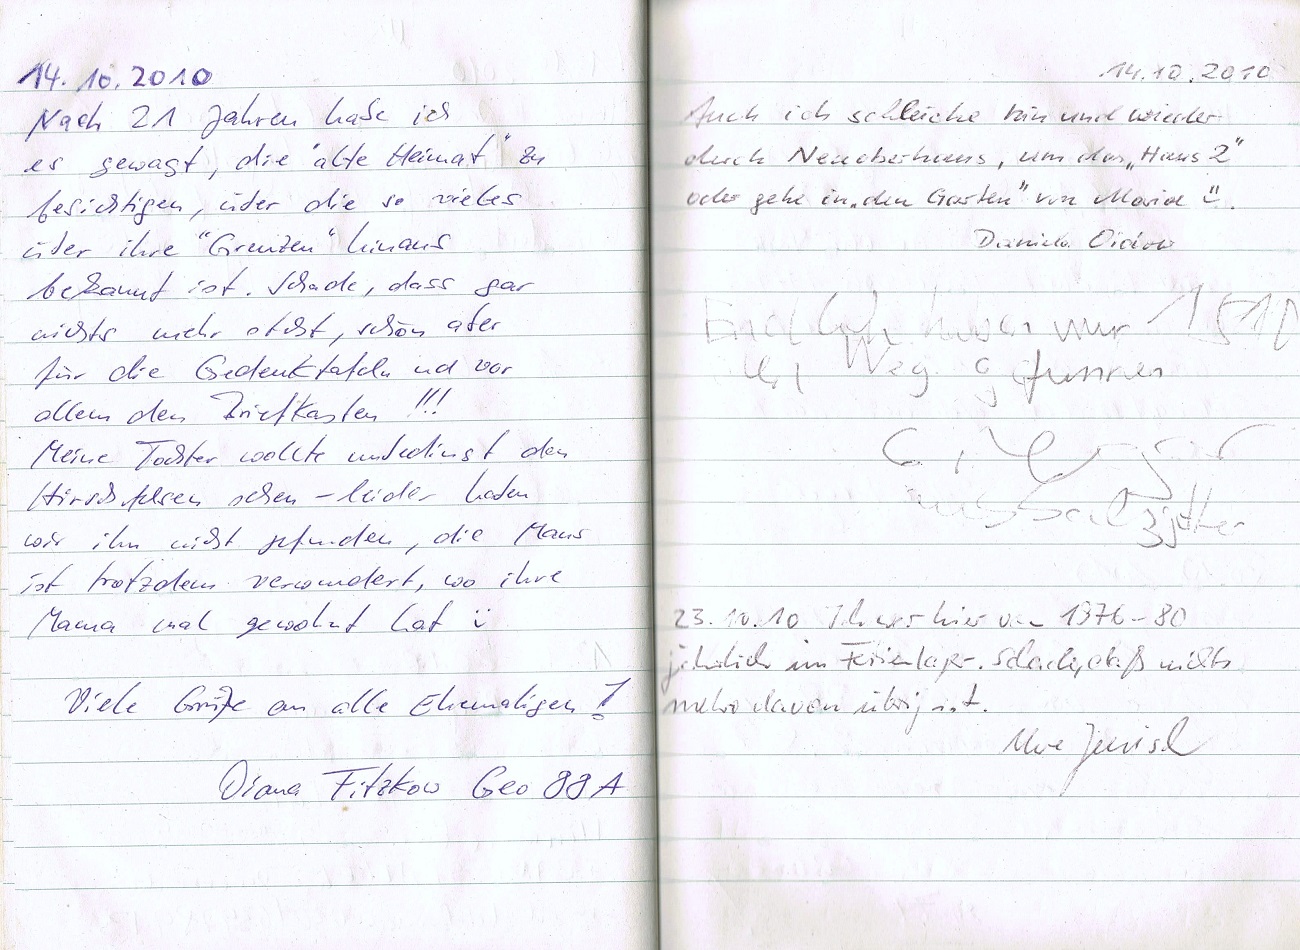 14.10.2010
Nach 21 Jahren habe ich
es gewagt, die "alte Heimat" zu
besichtigen, über die so vieles
über ihre "Grenzen" hinaus
bekannt ist. Schade, dass gar
nichts mehr steht, schön aber
für die Gedenktafeln und vor
allem den Briefkasten !!!
Meine Tochter wollte unbedingt den
Hirschfelsen sehen – leider haben
wir ihn nicht gefunden, die Maus
ist trotzdem verwundert, wo ihre
Mama mal gewohnt hat :)
Viele Grüße an alle Ehemaligen!
Diana Fitzkow Geo 88 A
14.10.2010
Auch ich schleiche hin und wieder
durch Neuoberhaus, um das „Haus 2"
oder gehe in „den Garten" von Maria :).
Daniela
Endlich haben wir 1510
Weg gfunne
23.10.10 Ich war hier von 1976–80
jährlich im Ferienlager. Schade, daß nichts
mehr davon übrig ist.
Uwe